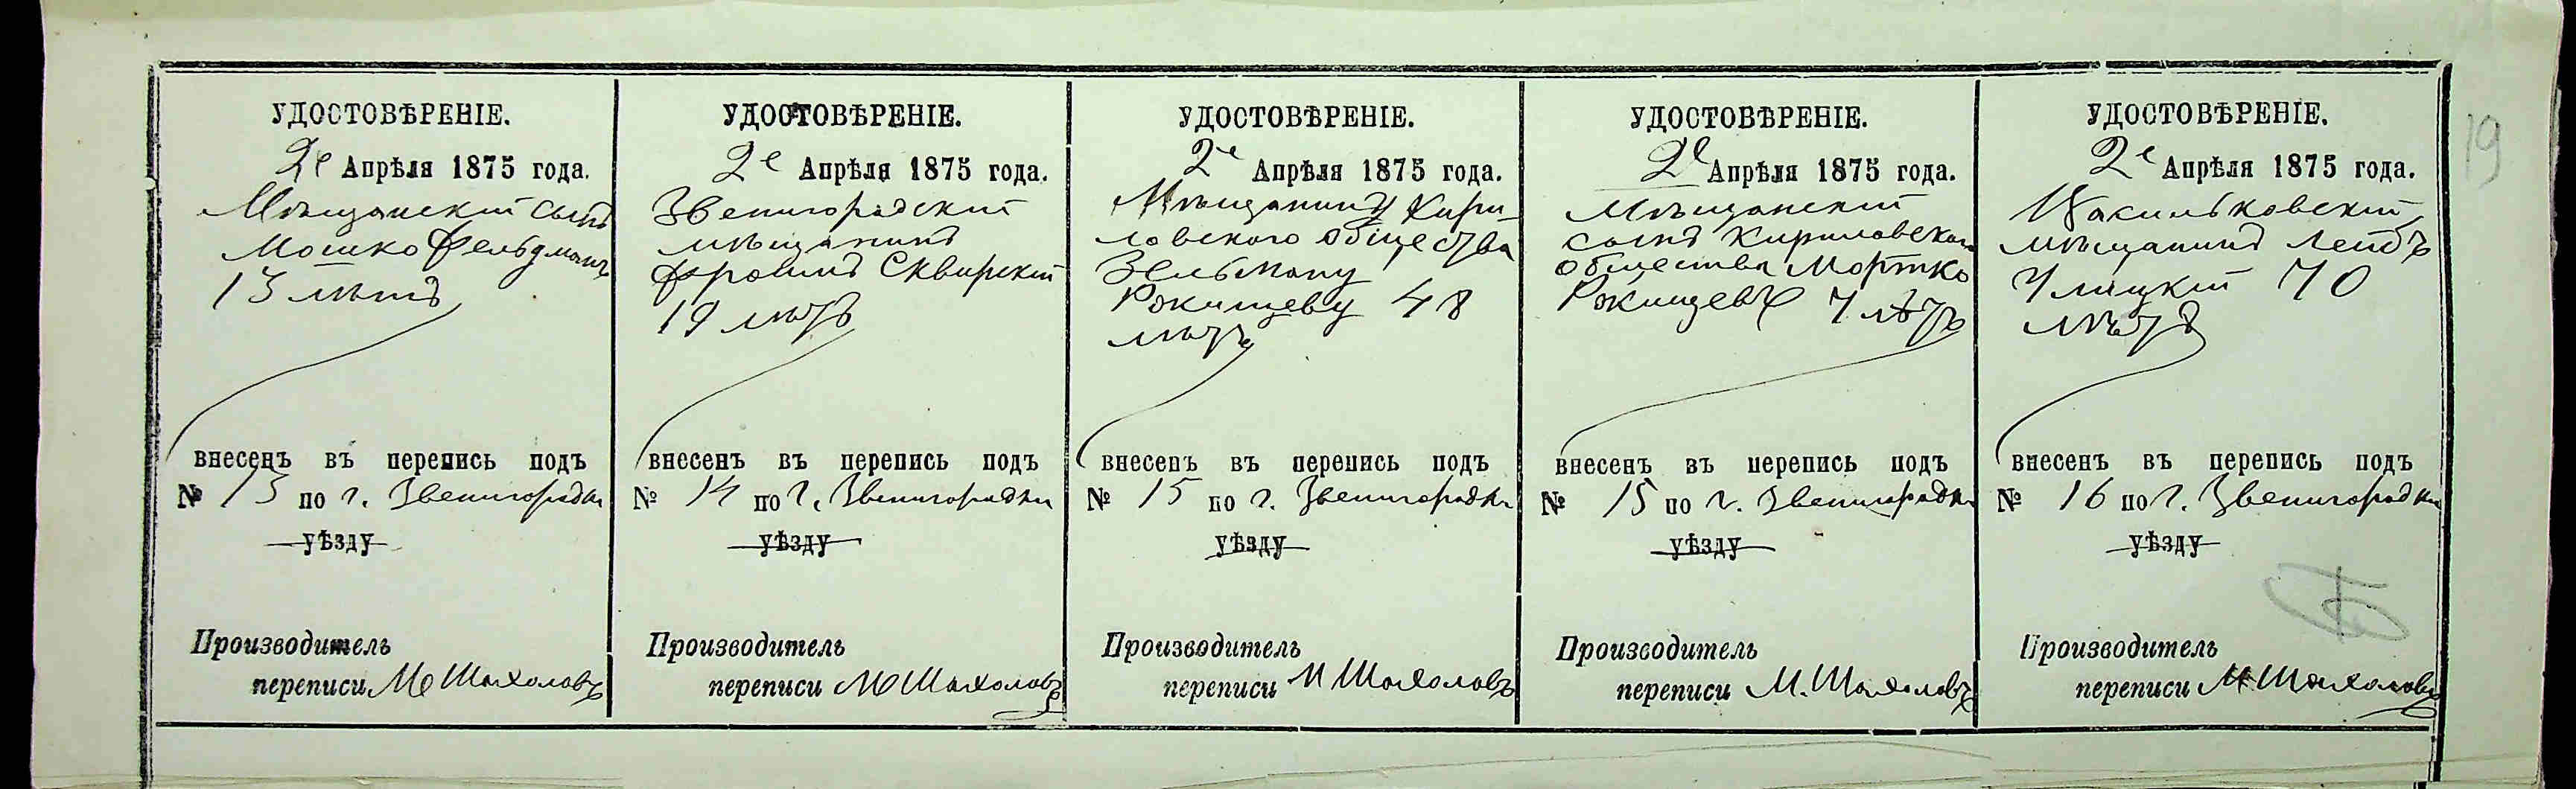 19
УДОСТОВѢРЕНІЕ.
2е Апрѣля 1875 года.
Мѣщанскій сынъ
Мошко Фельдманъ
13 лѣтъ
внесенъ въ перепись подъ
№ 13 по г. Звенигородки
уѣзду
Производитель
переписи М Шахоловъ
УДОСТОВѢРЕНІЕ.
2е Апрѣля 1875 года.
Звенигородскій
мѣщанинъ
Фроимъ Сквирскій
19 лѣтъ
внесенъ въ перепись подъ
№ 14 по г. Звенигородки
уѣзду
Производитель
переписи М Шахоловъ
УДОСТОВѢРЕНІЕ.
2е Апрѣля 1875 года.
Мѣщанину Кири-
ловского общества
Зельману
Ржищеву 48
лѣтъ
внесенъ въ перепись подъ
№ 15 по г. Звенигородки
уѣзду
Производитель
переписи М Шахоловъ
УДОСТОВѢРЕНІЕ.
2е Апрѣля 1875 года.
Мѣщанскій
сынъ Кириловского
общества Мортко
Ржищевъ 7 лѣтъ
внесенъ въ перепись подъ
№ 15 по г. Звенигородки
уѣзду
Производитель
переписи М. Шахоловъ
УДОСТОВѢРЕНІЕ.
2е Апрѣля 1875 года.
Васильковскій
мѣщанинъ Лейбъ
Улицкій 70
лѣтъ
внесенъ въ перепись подъ
№ 16 по г. Звенигородки
уѣзду
Производитель
переписи М Шахоловъ